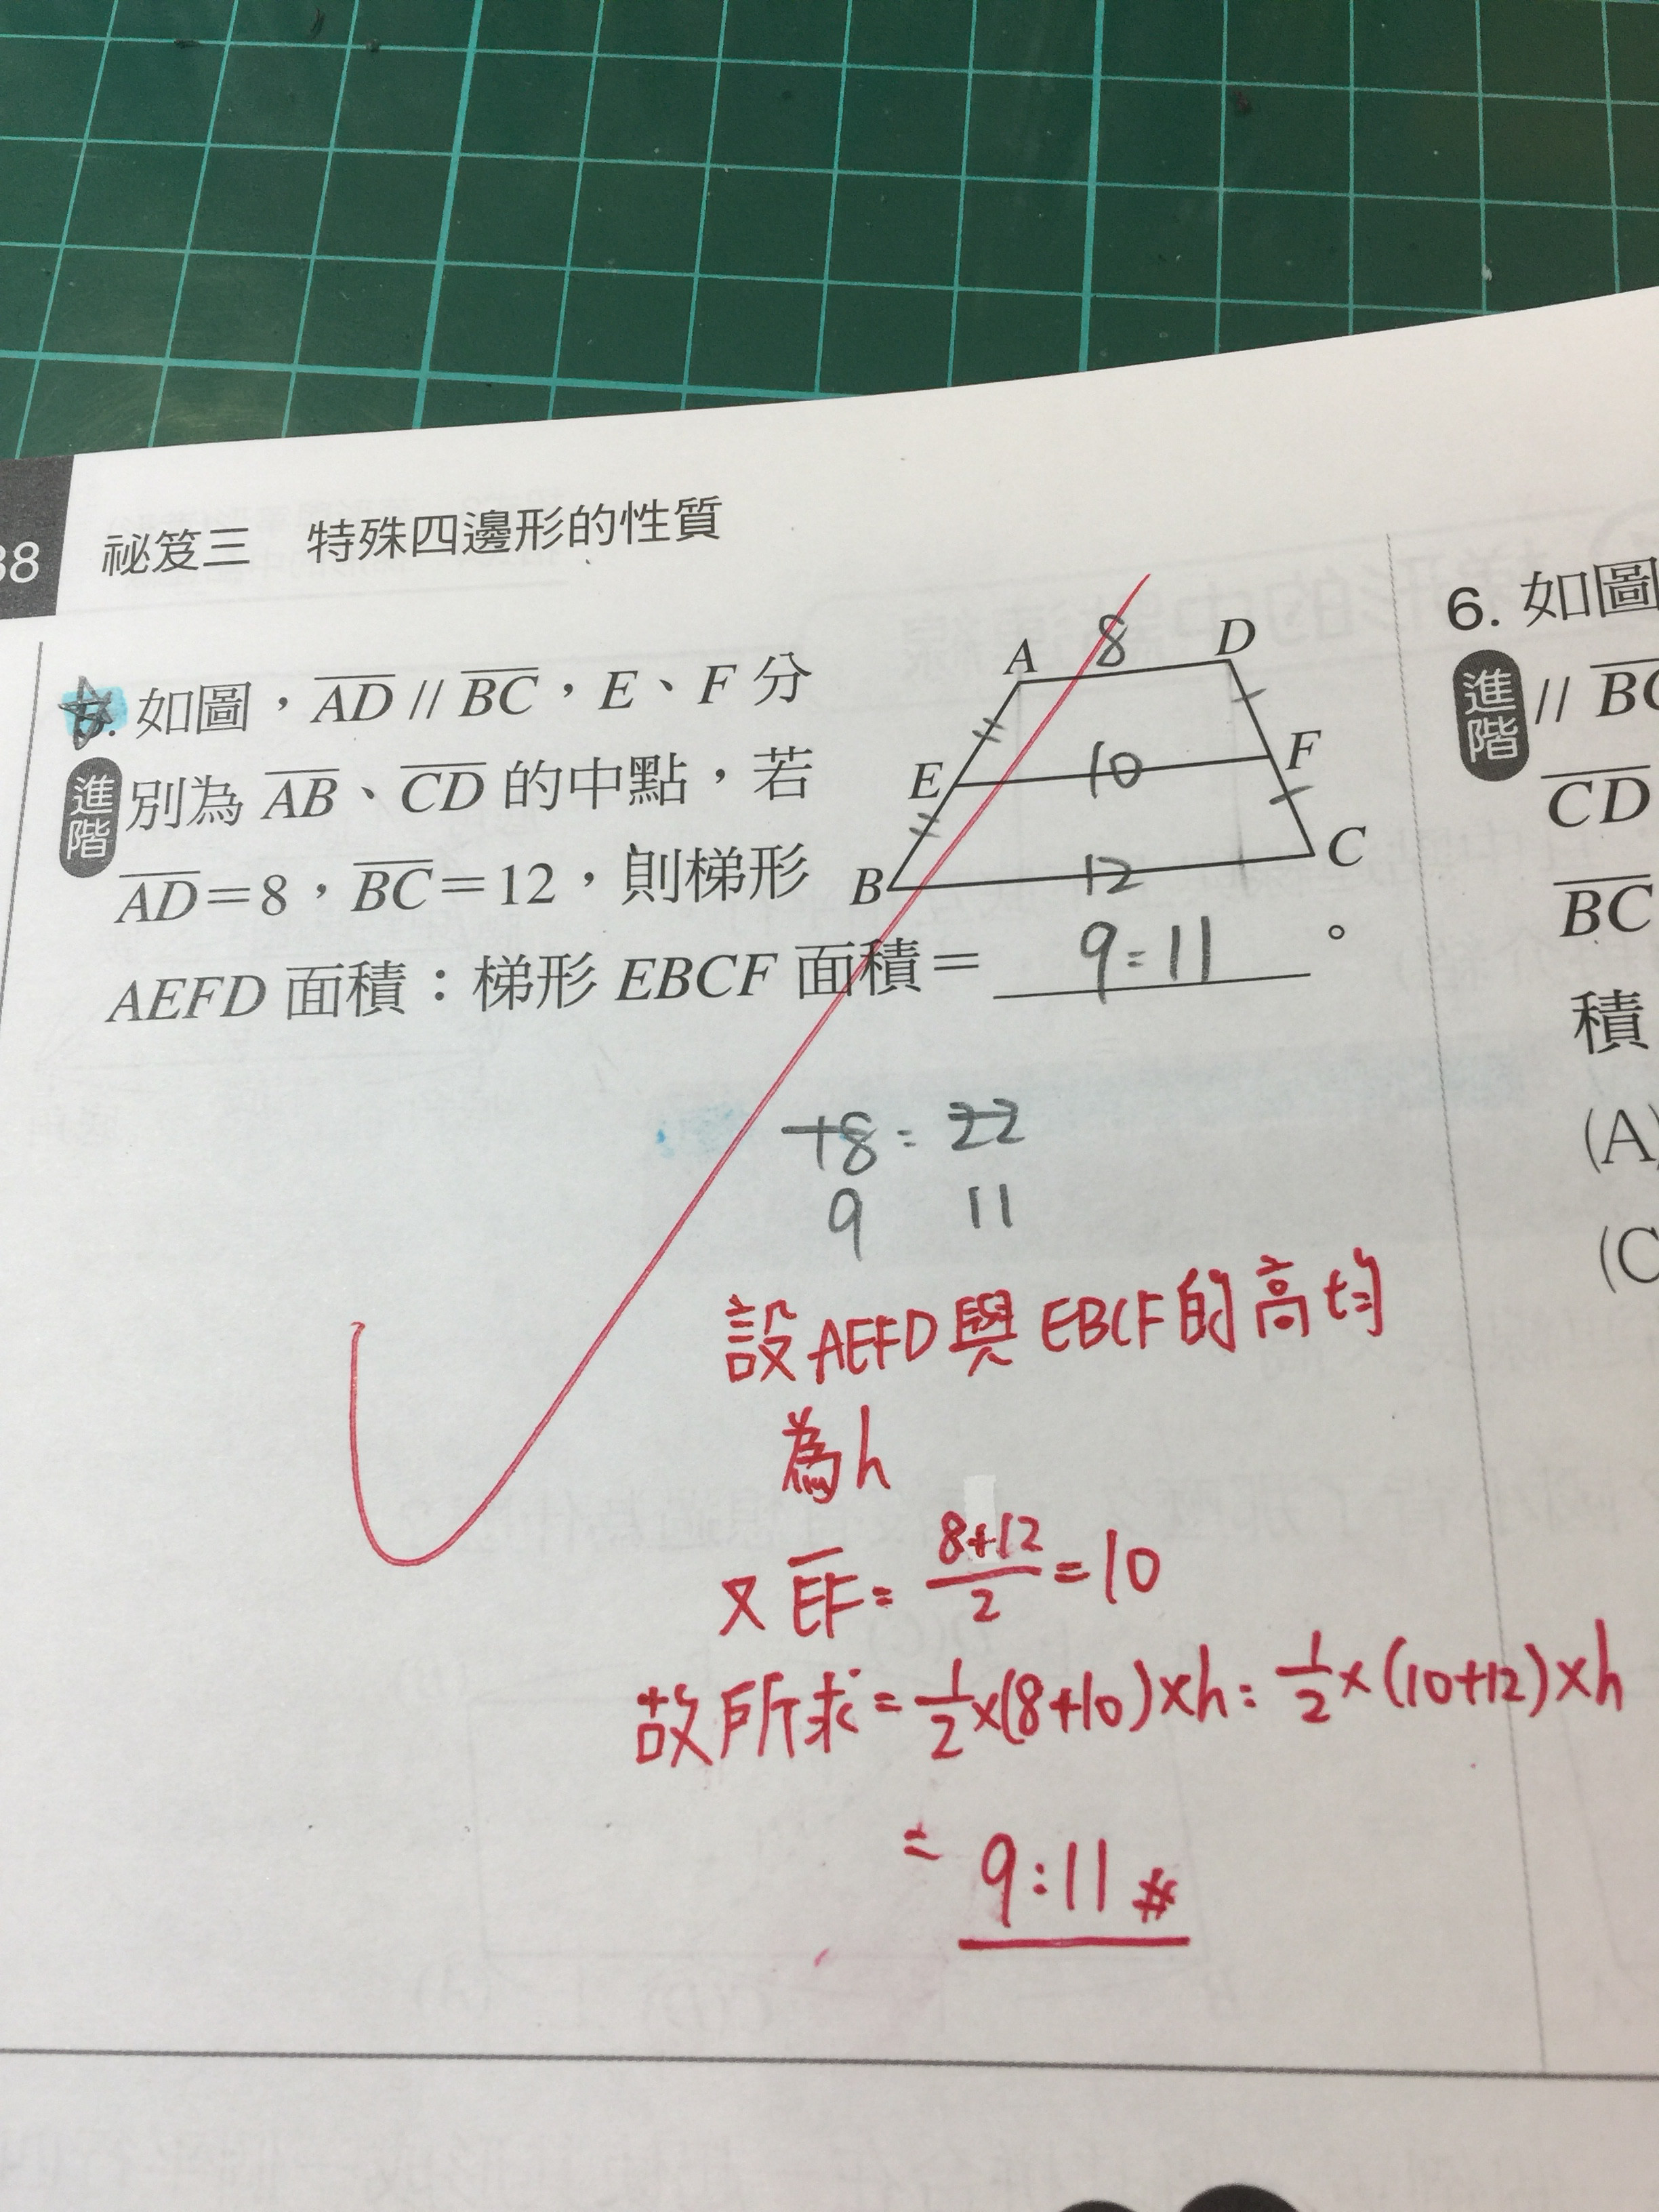 38 祕笈三 特殊四邊形的性質
5. 如圖，AD // BC，E、F 分
進階
別為 AB、CD 的中點，若
AD＝8，BC＝12，則梯形
AEFD 面積：梯形 EBCF 面積＝ 9:11 。
A 8 D
E 10 F
B 12 C
18:22
9 11
設AEFD與EBCF的高均
為h
又EF= 8+12/2 =10
故所求=1/2×(8+10)×h:1/2×(10+12)×h
= 9:11 #
6. 如圖
進階
// BC
CD
BC
積
(A)
(C